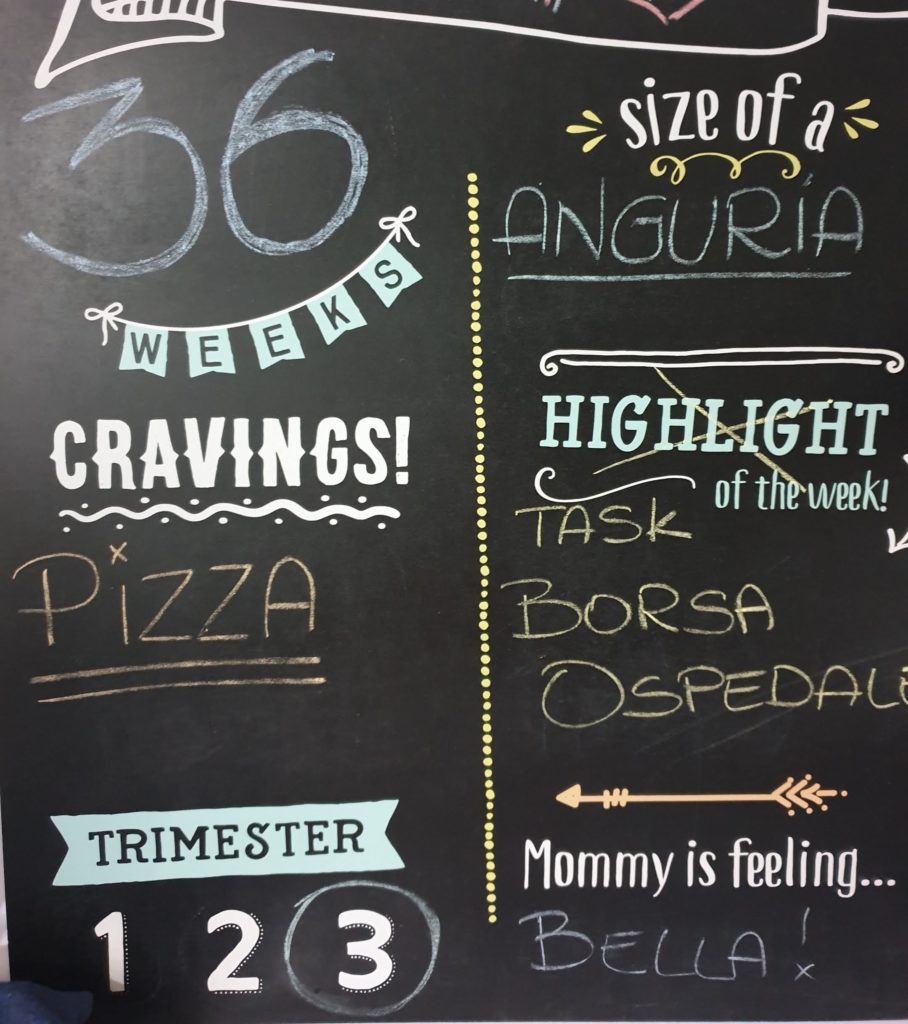 36
WEEKS
CRAVINGS!
PiZZA
TRIMESTER
1 2 3
size of a
ANGURiA
HIGHLIGHT
of the week!
TASK
BORSA
OSPEDALE
Mommy is feeling...
BELLA!